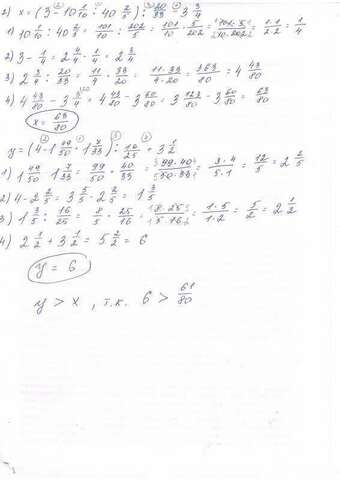 2) x = (3 - 10 1/10 : 40 2/5) : 20/33 - 3 3/4
1) 10 1/10 : 40 2/5 = 101/10 : 202/5 = 101/10 · 5/202 = 101·5/10·202 = 1·1/2·2 = 1/4
2) 3 - 1/4 = 2 4/4 - 1/4 = 2 3/4
3) 2 3/4 : 20/33 = 11/4 · 33/20 = 11·33/4·20 = 363/80 = 4 43/80
4) 4 43/80 - 3 3/4 = 4 43/80 - 3 60/80 = 3 123/80 - 3 60/80 = 63/80
x = 63/80
y = (4 - 1 49/50 · 1 7/33) : 16/25 + 3 1/2
1) 1 49/50 · 1 7/33 = 99/50 · 40/33 = 99·40/50·33 = 3·4/5·1 = 12/5 = 2 2/5
2) 4 - 2 2/5 = 3 5/5 - 2 2/5 = 1 3/5
3) 1 3/5 : 16/25 = 8/5 · 25/16 = 8·25/5·16 = 1·5/1·2 = 5/2 = 2 1/2
4) 2 1/2 + 3 1/2 = 5 2/2 = 6
y = 6
y > x , т.к. 6 > 61/80